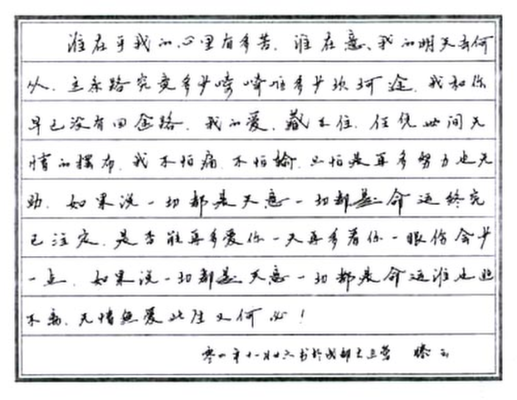 谁在乎我的心里有多苦.谁在意、我的明天去何
从.这条路究竟多少崎崎岖多少坎坷途,我和你
早已没有回舍路.我的爱,藏不住,任凭世间无
情的摆布,我不怕痛,不怕输.只怕是再多努力也无
助.如果说一切都是天意一切都是命运终究
已注定.是否能再多爱你一天再多看你一眼伤会少
一点.如果说一切都是天意一切都是命运谁也逃
不离.无情无爱此生又何必!
零一年十一月廿六书于成都